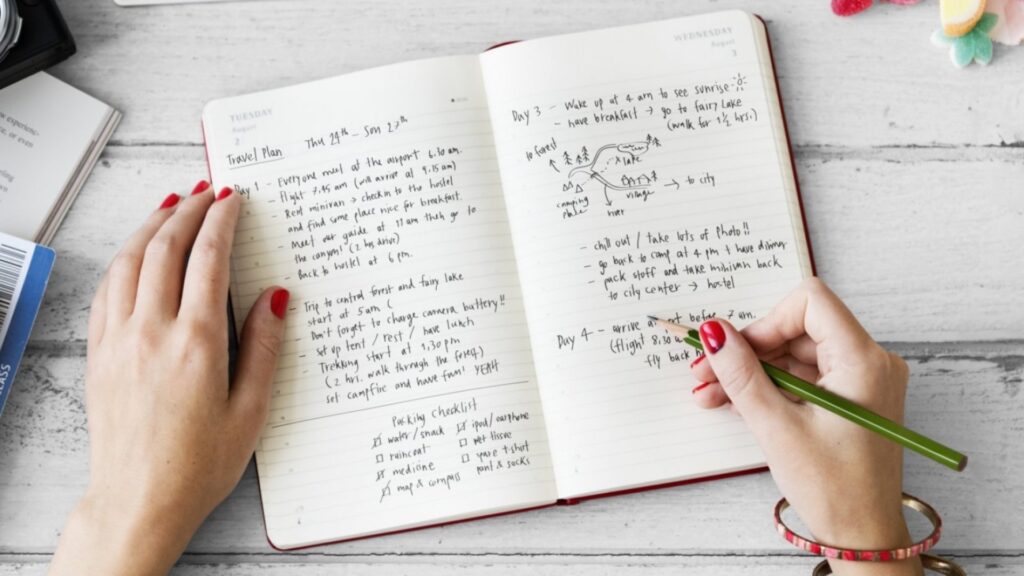 new experienc-
or even
CASS
TUESDAY
August
2
Thu 24th - Sun 27th
Travel Plan
Day 1 - Everyone meet at the airport 6.30 am.
- Flight 7.45 am (will arrive at 9.15 am)
- Rent minivan → checkin to the hostel
and find some place nice for breakfast
- Meet our guide at 11 am then go to
the canyon (2 hrs drive)
- Back to hostel at 6 pm.
- Trip to central forest and fairy lake
start at 5 am
Don't forget to charge camera battery!!
- Set up tent / rest / have lunch
- Trekking start at 1.30 pm
(2 hrs. walk through the forest)
set campfire and have fun! YEAH
Packing checklist
water/snack
raincoat
medicine
map & compass
ipod/earphone
wet tissue
t-shirt
pant & socks
WEDNESDAY
August
3
Day 3 - Wake up at 4 am to see sunrise
- have breakfast → go to fairy lake
(walk for 1½ hrs.)
to forest
lake
village
→ to city
camping
river
- chill out / take lots of photo!!
- go back to camp at 4 pm & have dinner
- pack stuff and take minivan back
to city center → hostel
Day 4 - arrive before 7 am.
(flight 8.30
fly back